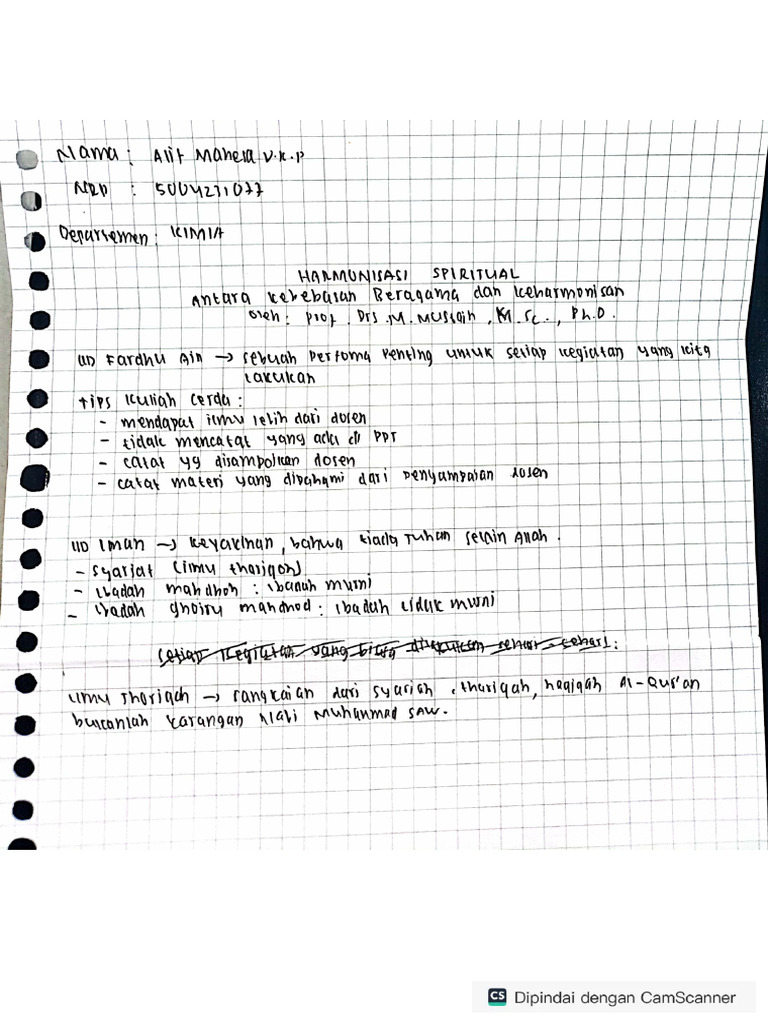 Nama : Alif Mahesa V.K.P
NRP : 5004231077
Departemen : KIMIA
HARMONISASI SPIRITUAL
Antara Kebebasan Beragama dan Keharmonisan
Oleh : Prof. Drs. M. Mustain, M.Sc., Ph.D.
UD Fardhu Ain → sebuah Pertama Penting untuk setiap kegiatan yang kita
lakukan
tips kuliah cerda :
- mendapat ilmu lebih dari dosen
- tidak mencatat yang ada di PPT
- catat yg disampaikan dosen
- catat materi yang dipahami dari penyampaian dosen
UD Iman → keyakinan, bahwa tiada Tuhan selain Allah.
- syariat (ilmu thariqoh)
- Ibadah mahdhoh : ibadah murni
- Ibadah ghoiru mahdhod : ibadah tidak murni
setiap kegiatan yang bisa dilakukan sehari-sehari :
Ilmu Thariqah → rangkaian dari syariah, thariqah, haqiqah Al-Qur'an
bukanlah karangan Nabi Muhammad SAW.
CS Dipindai dengan CamScanner